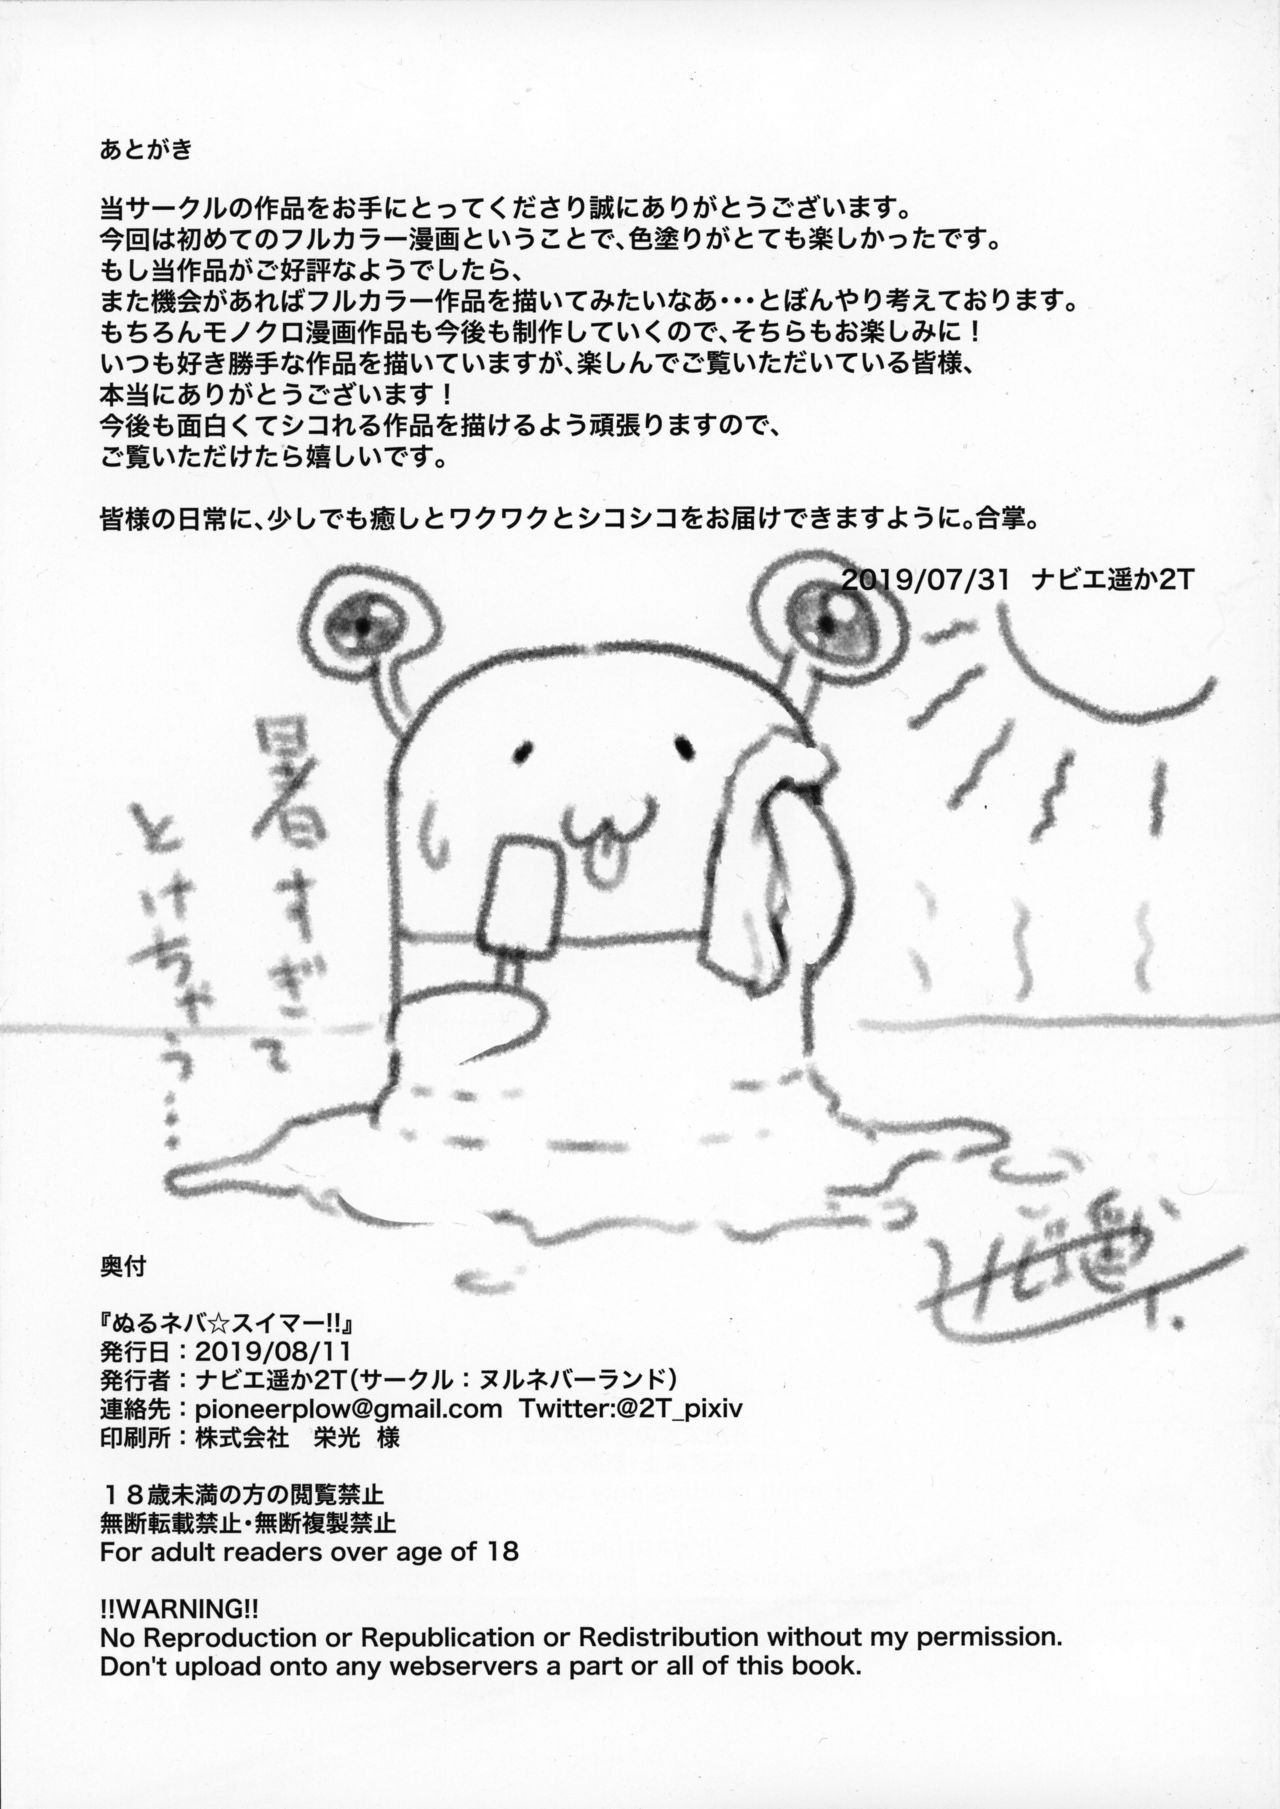 あとがき
当サークルの作品をお手にとってくださり誠にありがとうございます。
今回は初めてのフルカラー漫画ということで、色塗りがとても楽しかったです。
もし当作品がご好評なようでしたら、
また機会があればフルカラー作品を描いてみたいなあ･･･とぼんやり考えております。
もちろんモノクロ漫画作品も今後も制作していくので、そちらもお楽しみに！
いつも好き勝手な作品を描いていますが、楽しんでご覧いただいている皆様、
本当にありがとうございます！
今後も面白くてシコれる作品を描けるよう頑張りますので、
ご覧いただけたら嬉しいです。
皆様の日常に、少しでも癒しとワクワクとシコシコをお届けできますように。合掌。
2019/07/31 ナビエ遥か2T
暑すぎて
とけちゃう…
ナビエ遥か
奥付
『ぬるネバ☆スイマー!!』
発行日：2019/08/11
発行者：ナビエ遥か2T(サークル：ヌルネバーランド)
連絡先：pioneerplow@gmail.com Twitter:@2T_pixiv
印刷所：株式会社　栄光 様
１８歳未満の方の閲覧禁止
無断転載禁止･無断複製禁止
For adult readers over age of 18
!!WARNING!!
No Reproduction or Republication or Redistribution without my permission.
Don't upload onto any webservers a part or all of this book.